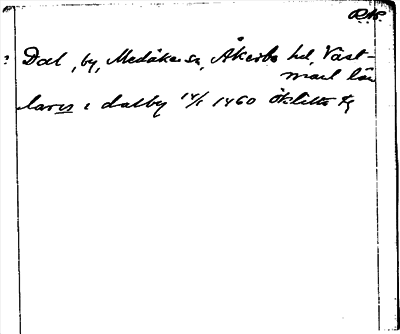 RAP.
? Dal, by, Medåkers sn, Åkerbo hd, Väst-
manl län
lares i dalby 14/1 1460 öklitte